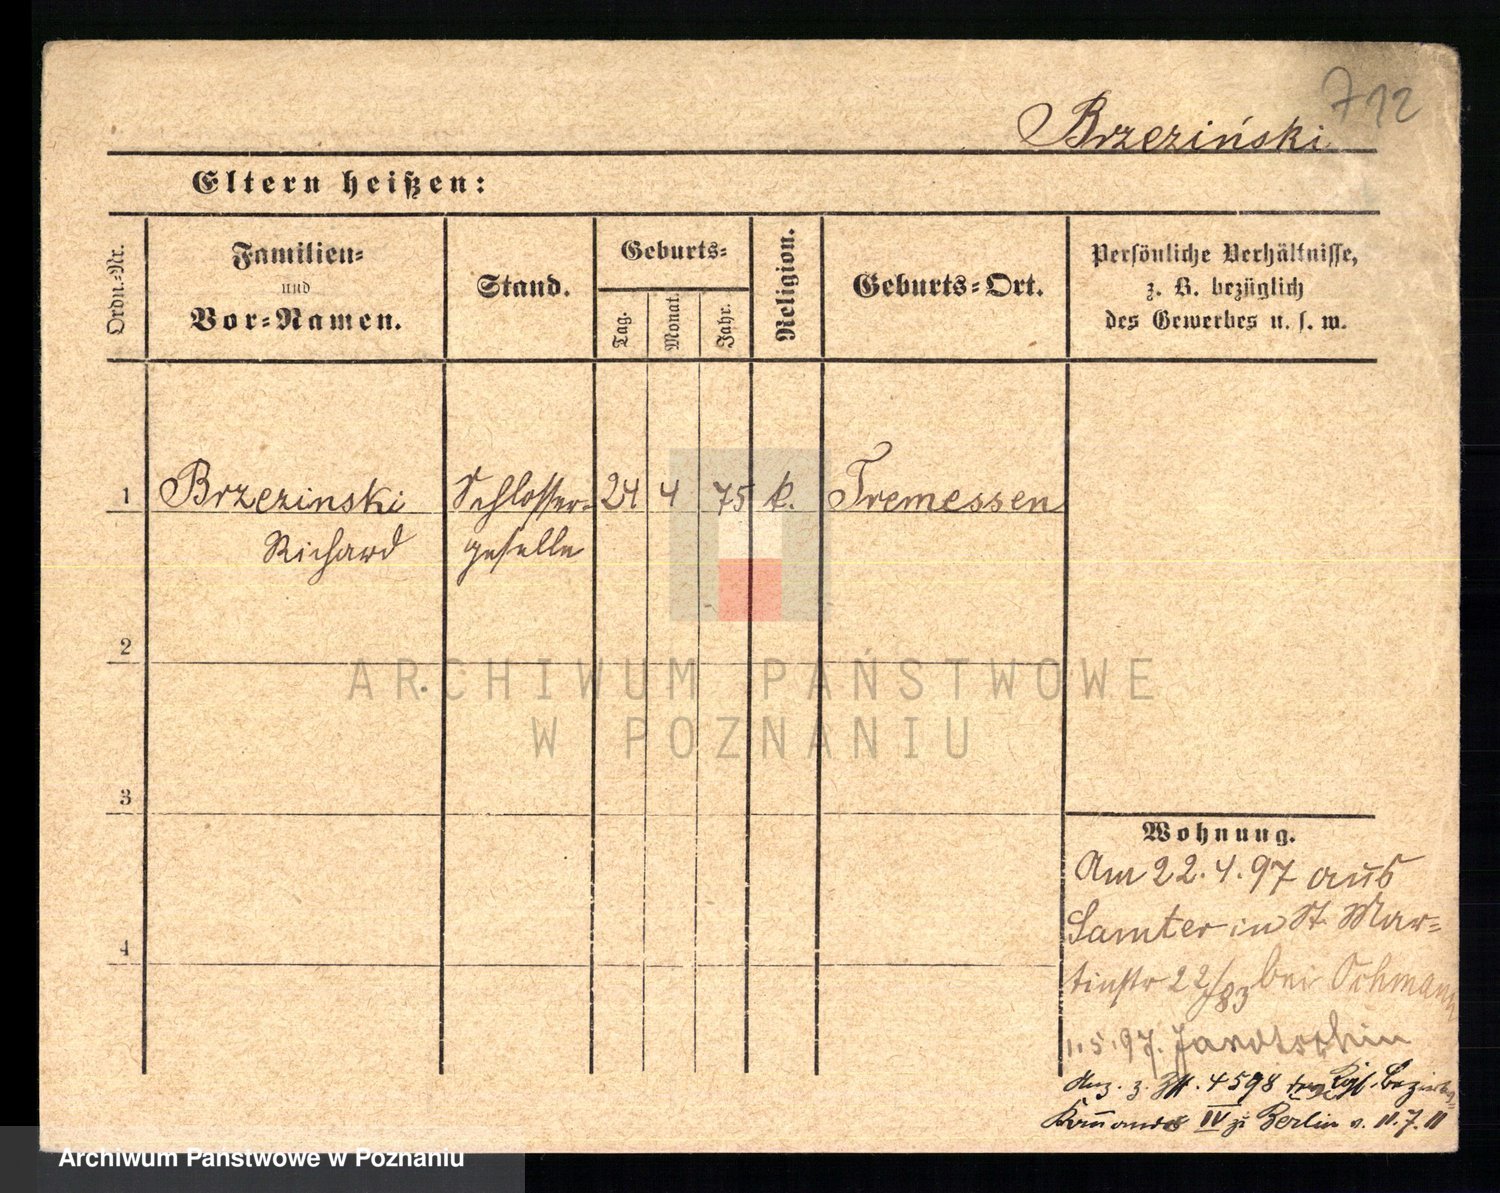 712
Brzeziński
Eltern heißen:
Ordn.-Nr.
Familien-
und
Vor-Namen.
Stand.
Geburts-
Tag.
Monat.
Jahr.
Religion.
Geburts-Ort.
Persönliche Verhältnisse,
z. B. bezüglich
des Gewerbes u. s. w.
1 Brzezinski Schlosser- 24 4 75 k. Tremessen
Richard geselle
2
3
4
ARCHIWUM PAŃSTWOWE
W POZNANIU
Wohnung.
Am 22.4.97 aus
Samter in St. Mar-
tinstr 22/83 bei Ochmann
1.5.97. Jarotschin
Anz. z. 4598 Kgl. Bezirks-
Kommandos IV zu Berlin v. 11.7.11
Archiwum Państwowe w Poznaniu